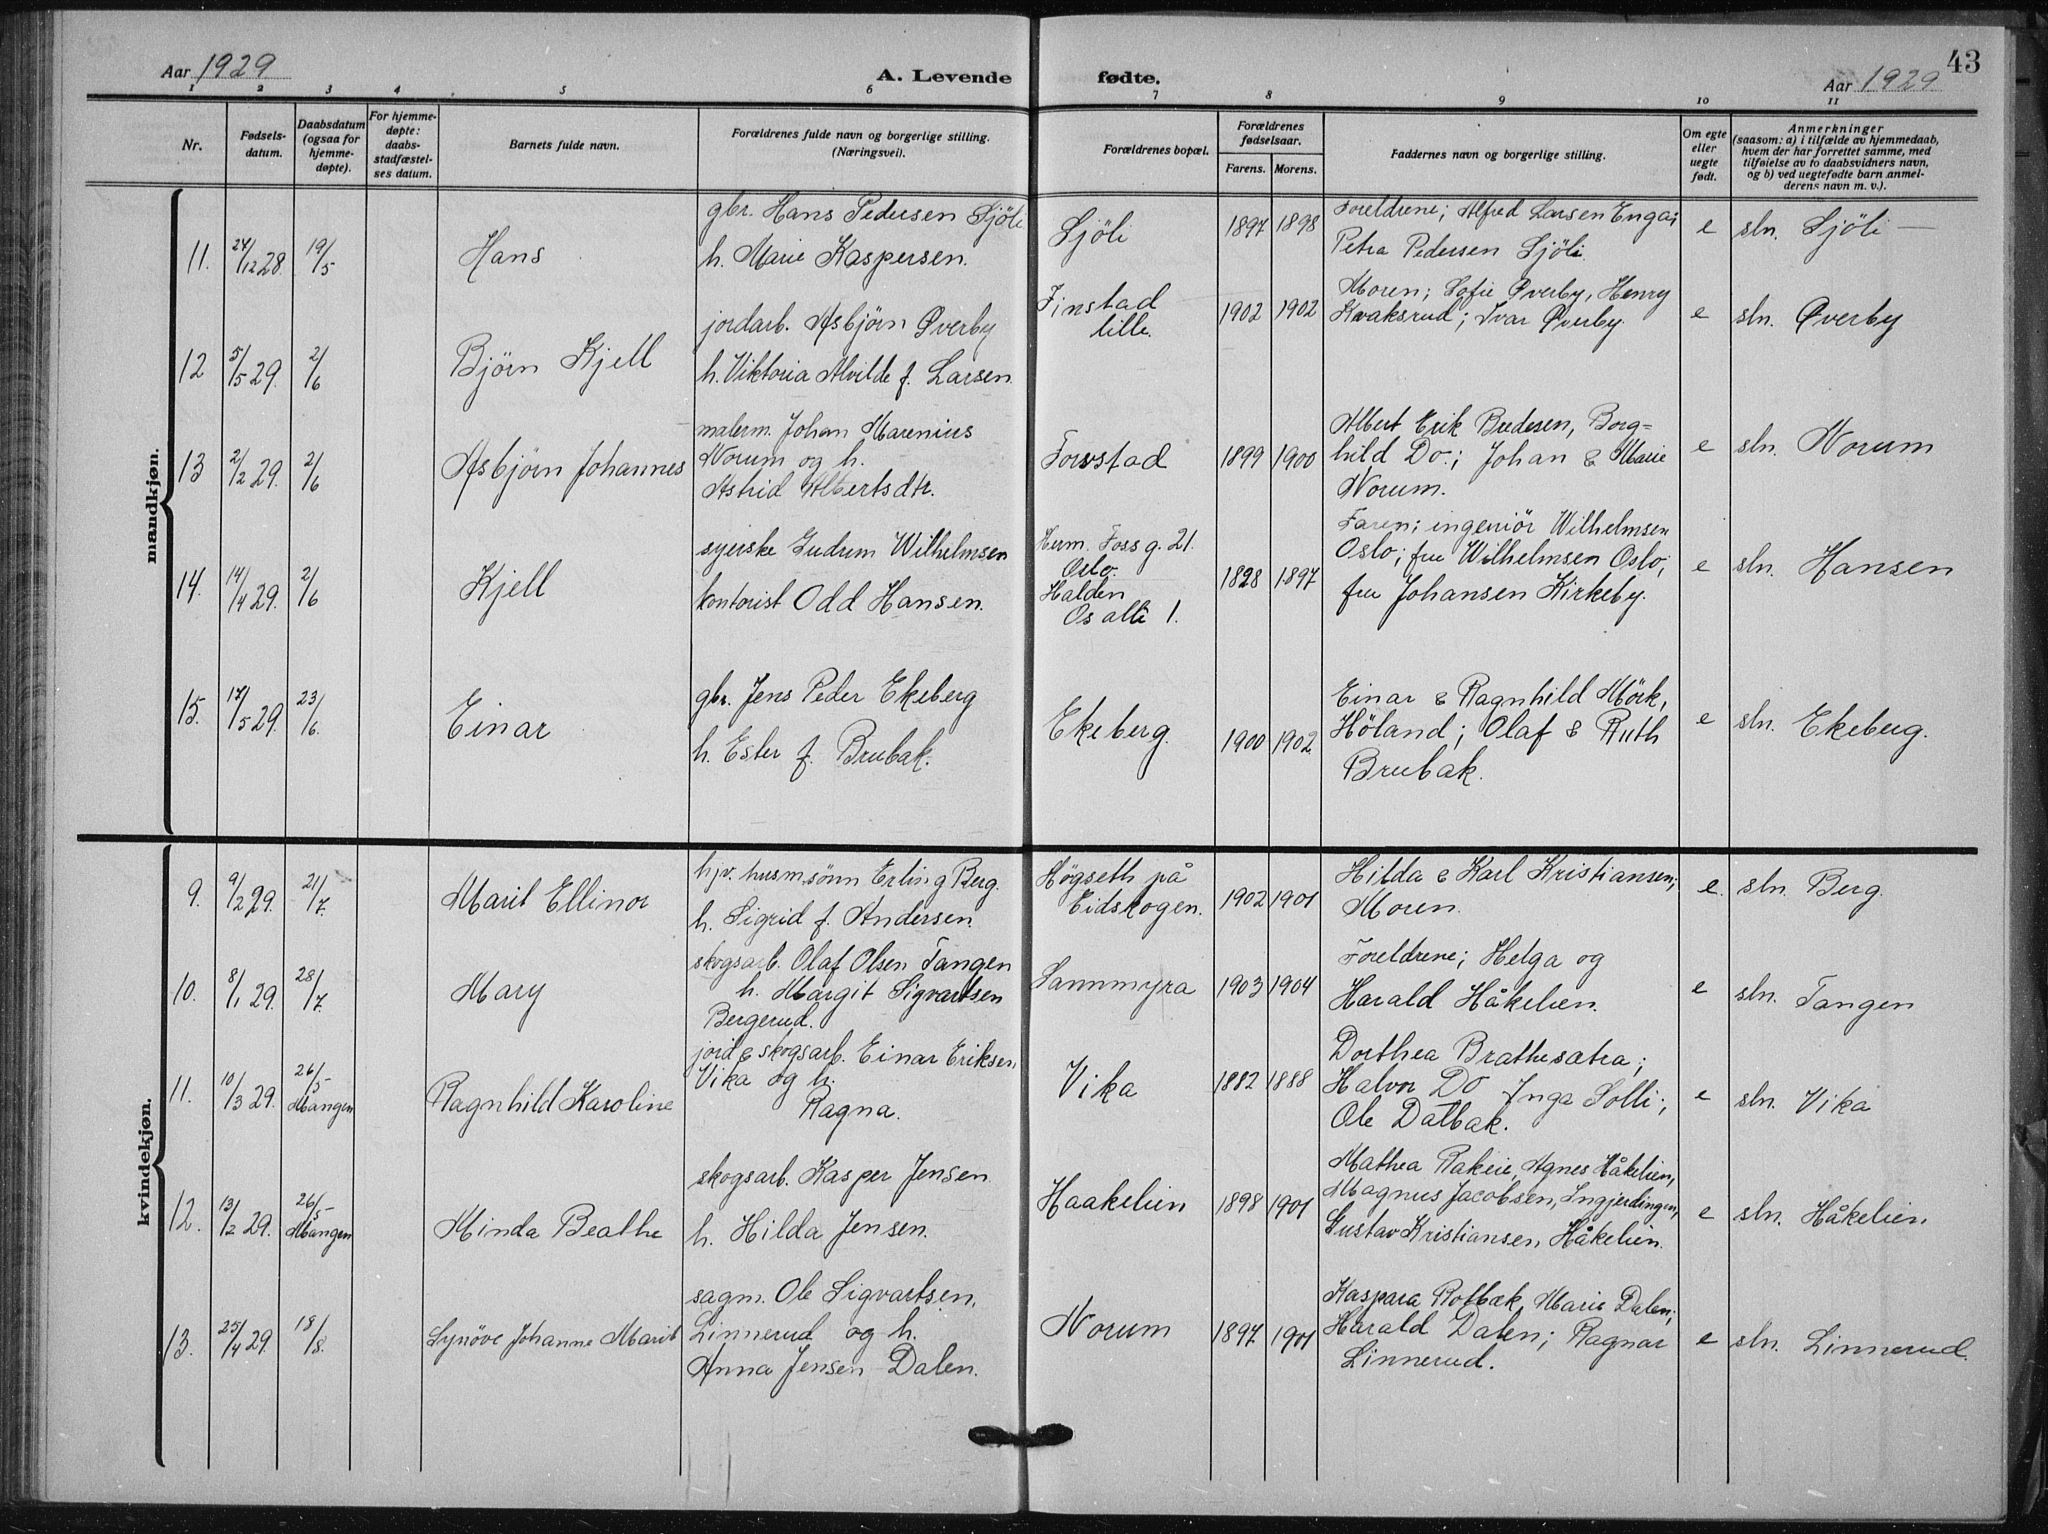 Aar 1929
A. Levende
fødte.
Aar 1929
43
1 2 3 4 5 6 7 8 9 10 11
Nr.
Fødsels-
datum.
Daabsdatum
(ogsaa for
hjemme-
døpte).
For hjemme-
døpte:
daabs-
stadfæstel-
ses datum.
Barnets fulde navn.
Forældrenes fulde navn og borgerlige stilling.
(Næringsvei).
Forældrenes bopæl.
Forældrenes
fødselsaar.
Farens. Morens.
Faddernes navn og borgerlige stilling.
Om egte
eller
uegte
født.
Anmerkninger
(saasom: a) i tilfælde av hjemmedaab,
hvem der har forrettet samme, med
tilføielse av to daabsvidners navn,
og b) ved uegtefødte barn anmel-
derens navn m. v.).
mandkjøn.
11. 24/12 28. 19/5 Hans
gbr. Hans Pedersen Sjöli
h. Marie Kaspersen.
Sjöli
1897 1898
Foreldrene; Alfred Larsen Enga;
Petra Pedersen Sjöli
e sln. Sjöli —
12 5/5 29. 2/6 Bjørn Kjell
jordarb. Asbjörn Øverby
h. Viktoria Alvilde f. Larsen.
Finstad
lille.
1902 1902
Moren; Sofie Øverby, Henry
Kvaksrud; Ivar Øverby.
e sln. Øverby
13 2/2 29. 2/6 Asbjörn Johannes
malerm. Johan Marenius
Norum og h.
Astrid Albertsdtr.
Forvstad
1899 1900
Albert Erik Bredesen, Borg=
hild Do.; Johan & Marie
Norum.
e sln. Norum
14. 14/4 29. 2/6 Kjell
syerske Gudrun Wilhelmsen
kontorist Odd Hansen.
Herm. Foss g. 21.
Oslo.
Halden
Os allé 1.
1828 1897
Faren; ingeniör Wilhelmsen
Oslo; fru Wilhelmsen Oslo;
fru Johansen Kirkeby.
e sln. Hansen
15. 17/5 29. 23/6. Einar
gbr. Jens Peder Ekeberg
h. Ester f. Brubak.
Ekeberg.
1900 1902
Einar & Ragnhild Mörk,
Höland; Olaf & Ruth
Brubak.
e sln. Ekeberg.
kvindekjøn.
9. 9/2 29. 21/7. Marit Ellinor
hjv. husm.sönn Erling Berg.
h. Sigrid f. Andersen.
Høgseth på
Eidskogen.
1902 1901
Hilda & Karl Kristiansen;
Moren.
e. sln. Berg.
10. 8/1 29. 28/7. Mary
skogsarb. Olaf Olsen Tangen
h. Margit Sigvartsen
Bergerud.
Sannmyra
1903 1904
Foreldrene; Helga og
Harald Håkelien.
e sln. Tangen
11. 10/3 29. 26/5- Mangen Ragnhild Karoline
jord & skogsarb. Einar Eriksen
Vika og h.
Ragna.
Vika
1882 1888
Dorthea Brathesætra;
Halvor Do Inga Solli;
Ole Dalbak.
e sln. Vika
12. 13/2 29. 26/5- Mangen Minda Beathe
skogsarb. Kasper Jensen
h. Hilda Jensen.
Haakelien
1898 1901
Mathea Rakeie, Agnes Håkelien,
Magnus Jacobsen, Ingjerdingen,
Gustav Kristiansen Håkelien.
e sln. Håkelien
13. 25/4 29. 18/8. Synöve Johanne Marit
sagm. Ole Sigvartsen,
Linnerud og h.
Anna Jensen Dalen.
Norum
1897 1901
Kaspara Rolbæk, Marie Dalen;
Harald Dalen; Ragnar
Linnerud.
e sln. Linnerud.